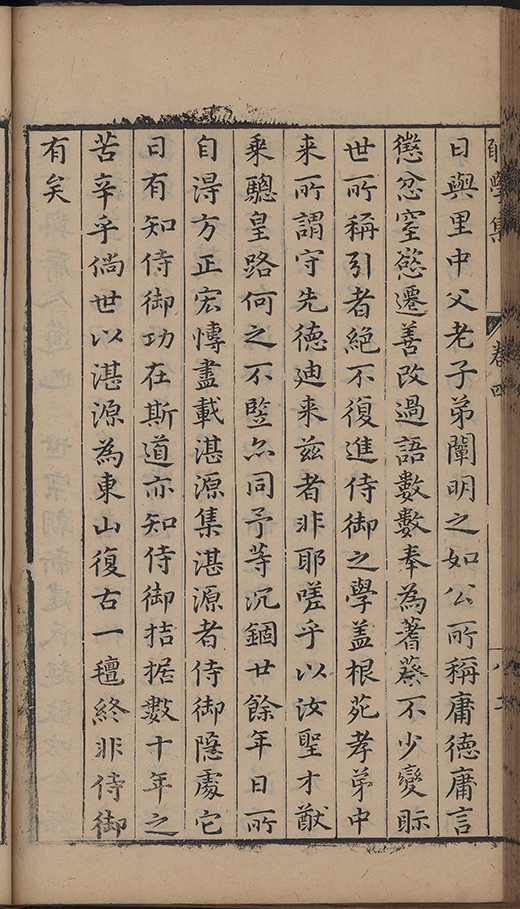 願學集
卷四
日與里中父老子弟闡明之如公所稱庸德庸言
懲忿窒慾遷善改過語數數奉為蓍蔡不少變眎
世所稱引者絕不復進侍御之學蓋根茺孝弟中
来所謂守先德迪来兹者非耶嗟乎以汝聖才猷
乘驄皇路何之不暨尒同予等沉錮廿餘年日所
自淂方正宏愽盡載湛源集湛源者侍御隠處它
日有知侍御功在斯道亦知侍御拮据數十年之
苦辛乎倘世以湛源為東山復古一氊終非侍御
有矣